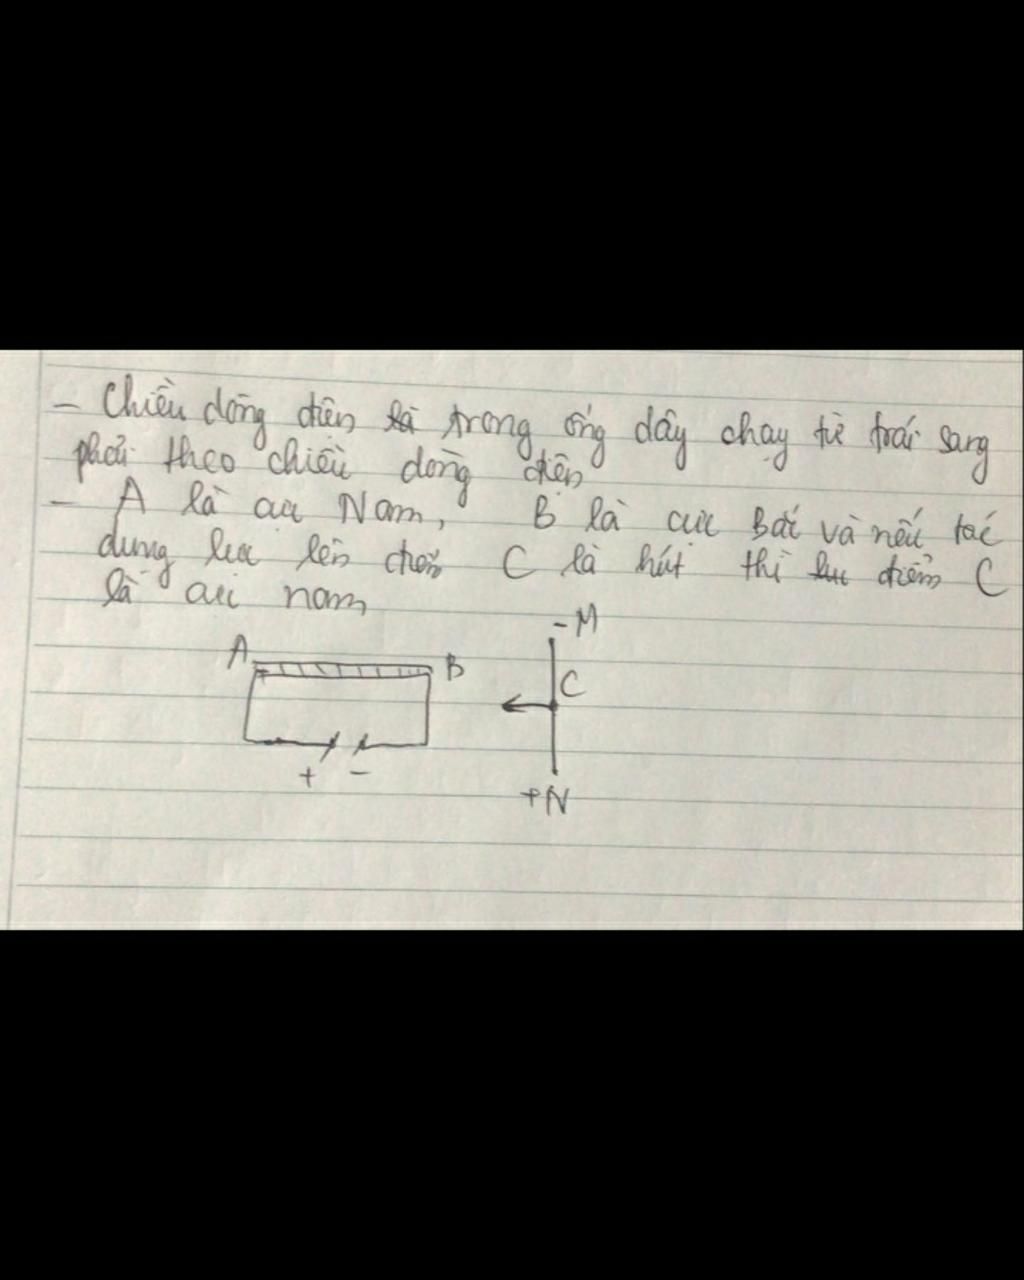 - Chiều dòng điện là trong ống dây chạy từ trái sang
phải theo chiều dòng điện
- A là cực Nam, B là cực Bắc và nếu tác
dụng lực lên điểm C là hút thì lực điểm C
là cực nam
-M
A B
C
+ -
+N